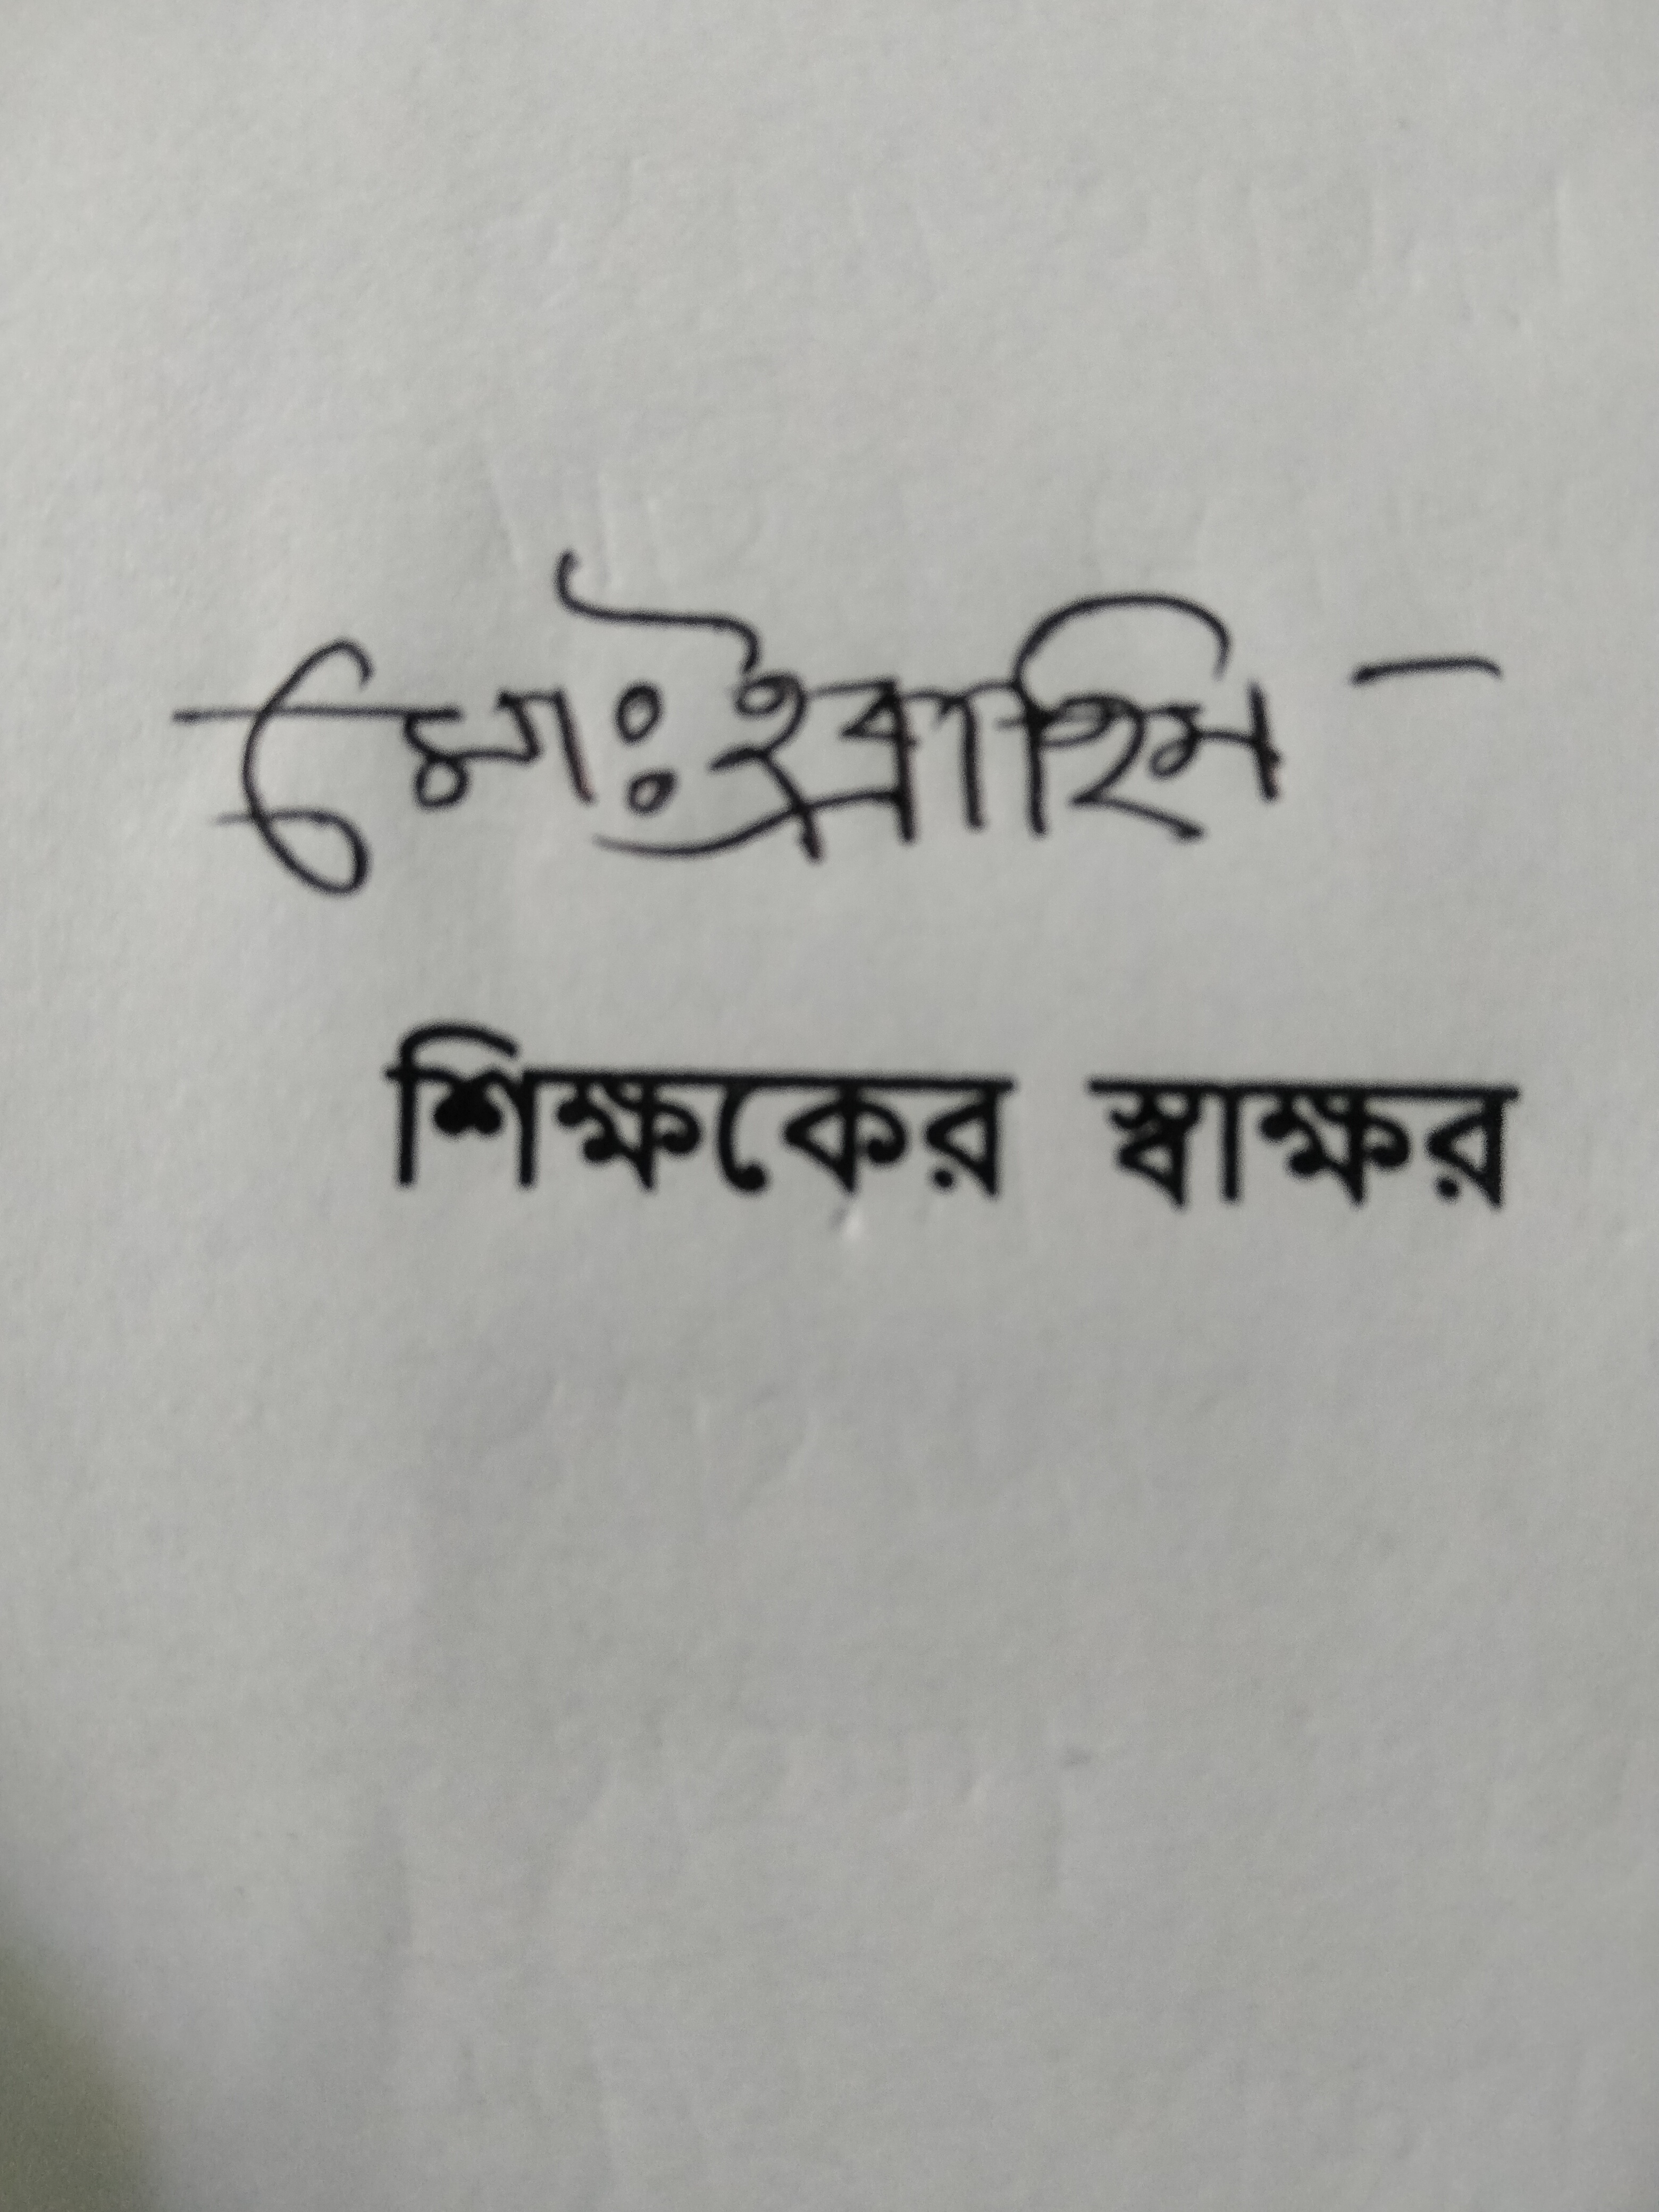 মো: ইব্রাহিম
শিক্ষকের স্বাক্ষর